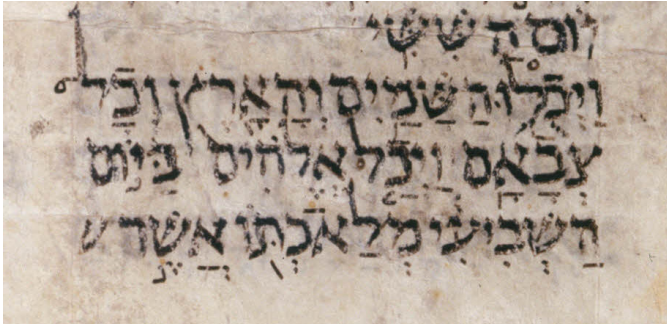 יום הששי
וַיְכֻלּוּ הַשָּׁמַיִם וְהָאָרֶץ וְכָל
צְבָאָם וַיְכַל אֱלֹהִים בַּיּוֹם
הַשְּׁבִיעִי מְלַאכְתּוֹ אֲשֶׁר